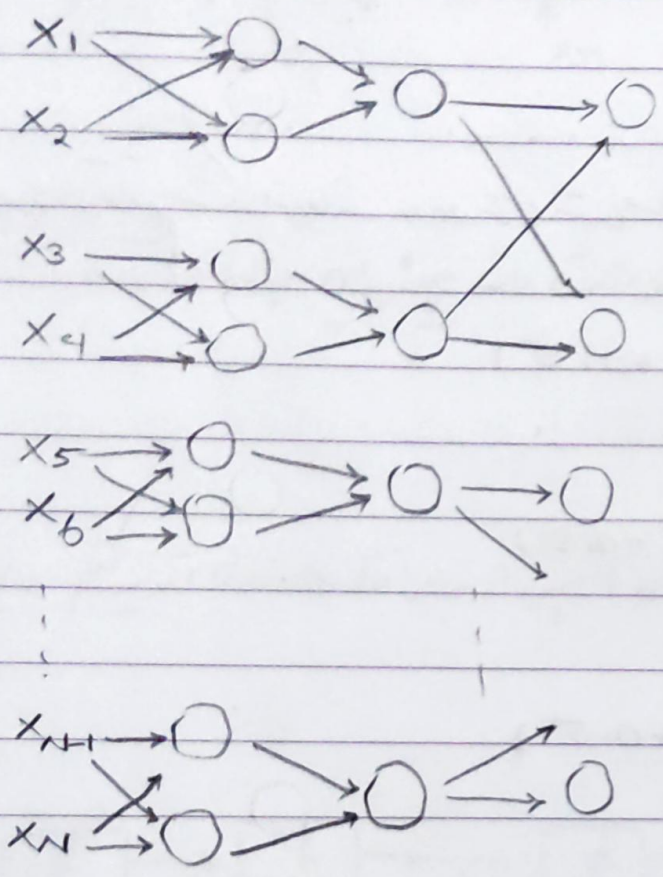 X1
X2
X3
X4
X5
X6
XN-1
XN